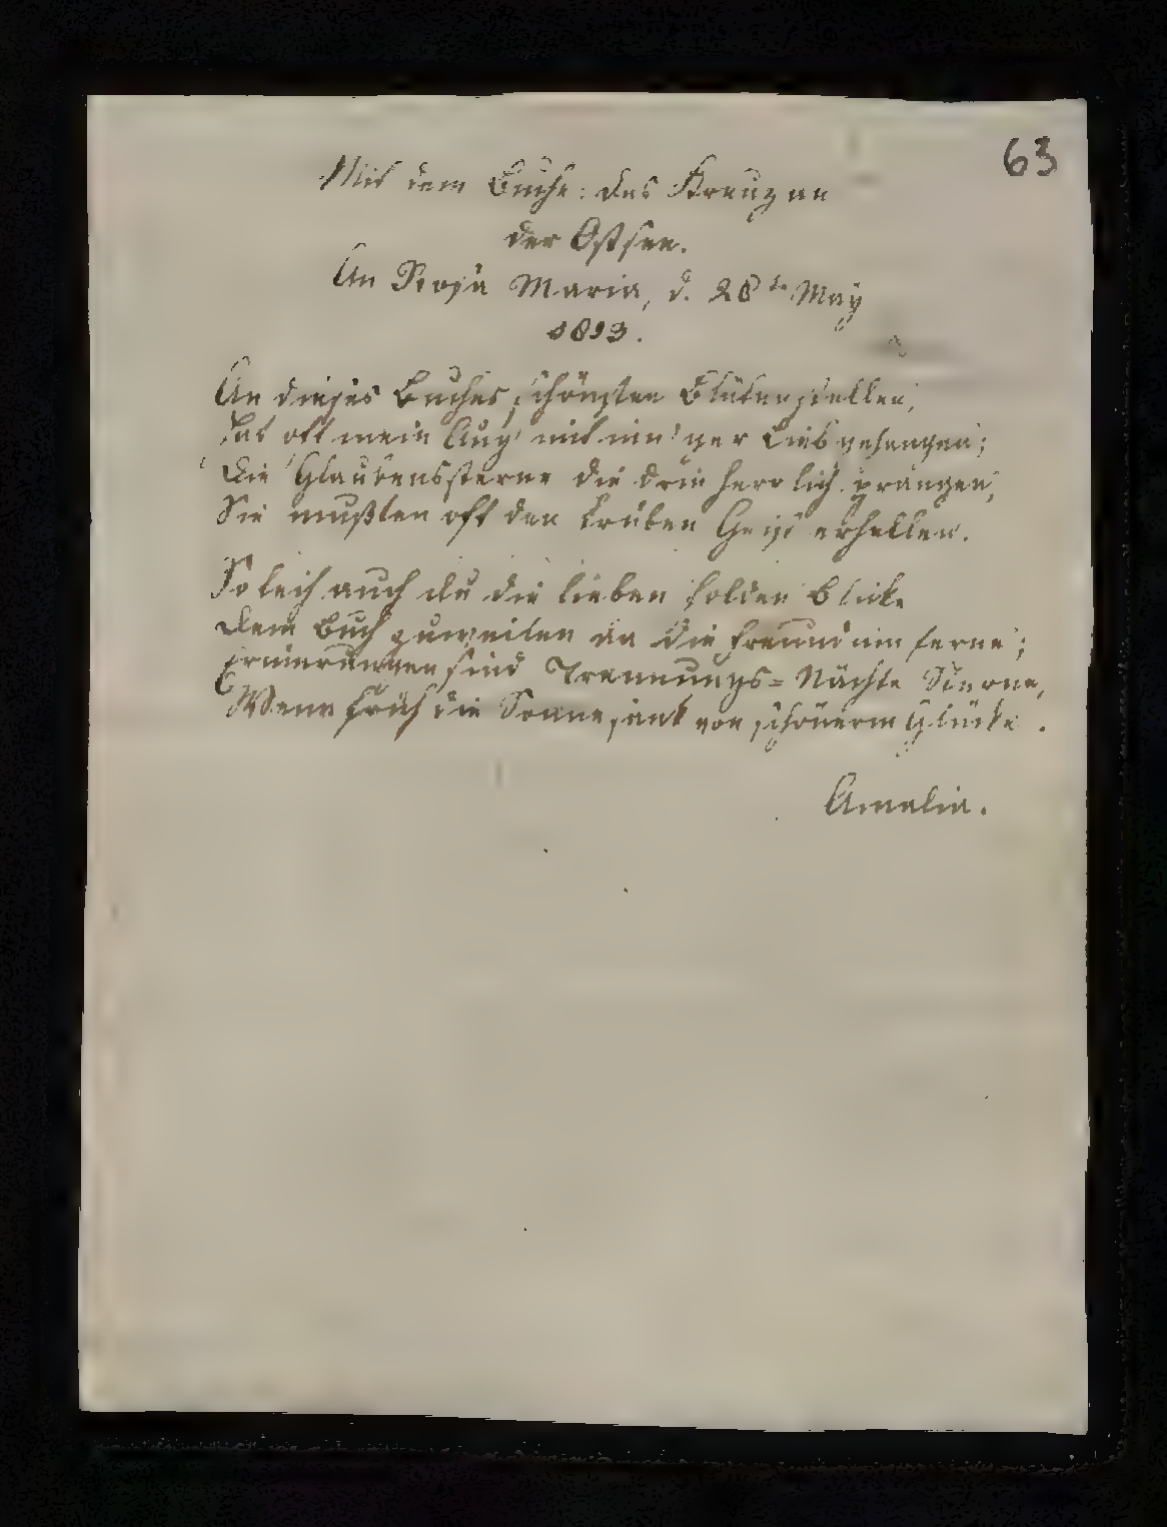 63
Mit dem Buche: das Kreuz an
der Ostsee.
An Rosa Maria, d. 28ten May
1813.
An dieses Buches schönsten Blütenstellen,
Hat oft mein Aug' mit ein'ger Lieb gehangen;
Die Glaubenssterne die drin herrlich prangen,
Sie mußten oft den trüben Geist erhellen.
So leih auch du die lieben holden Blicke
Dem Buch zuweilen an die Freundinn ferne;
Erinerungen sind Trennungs=Nächte Sterne,
Wenn früh die Sonne sank von schönerm Glücke.
Amalia.